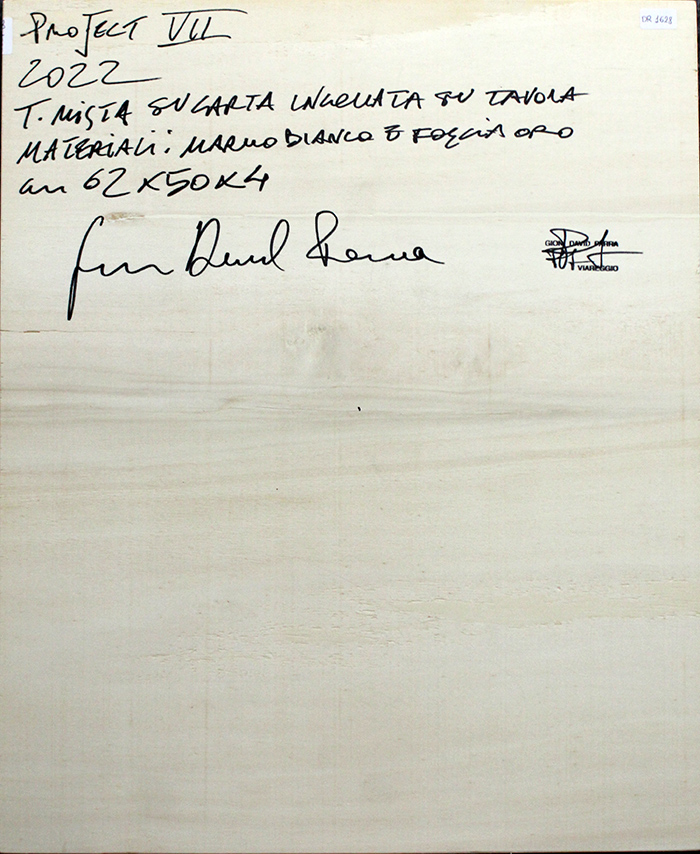 PROJECT VII
DR 1628
2022
T. MISTA SU CARTA INCOLLATA SU TAVOLA
MATERIALI: MARMO BIANCO E FOGLIA ORO
cm 62x50x4
Gion David Parra
GION DAVID PARRA
VIAREGGIO